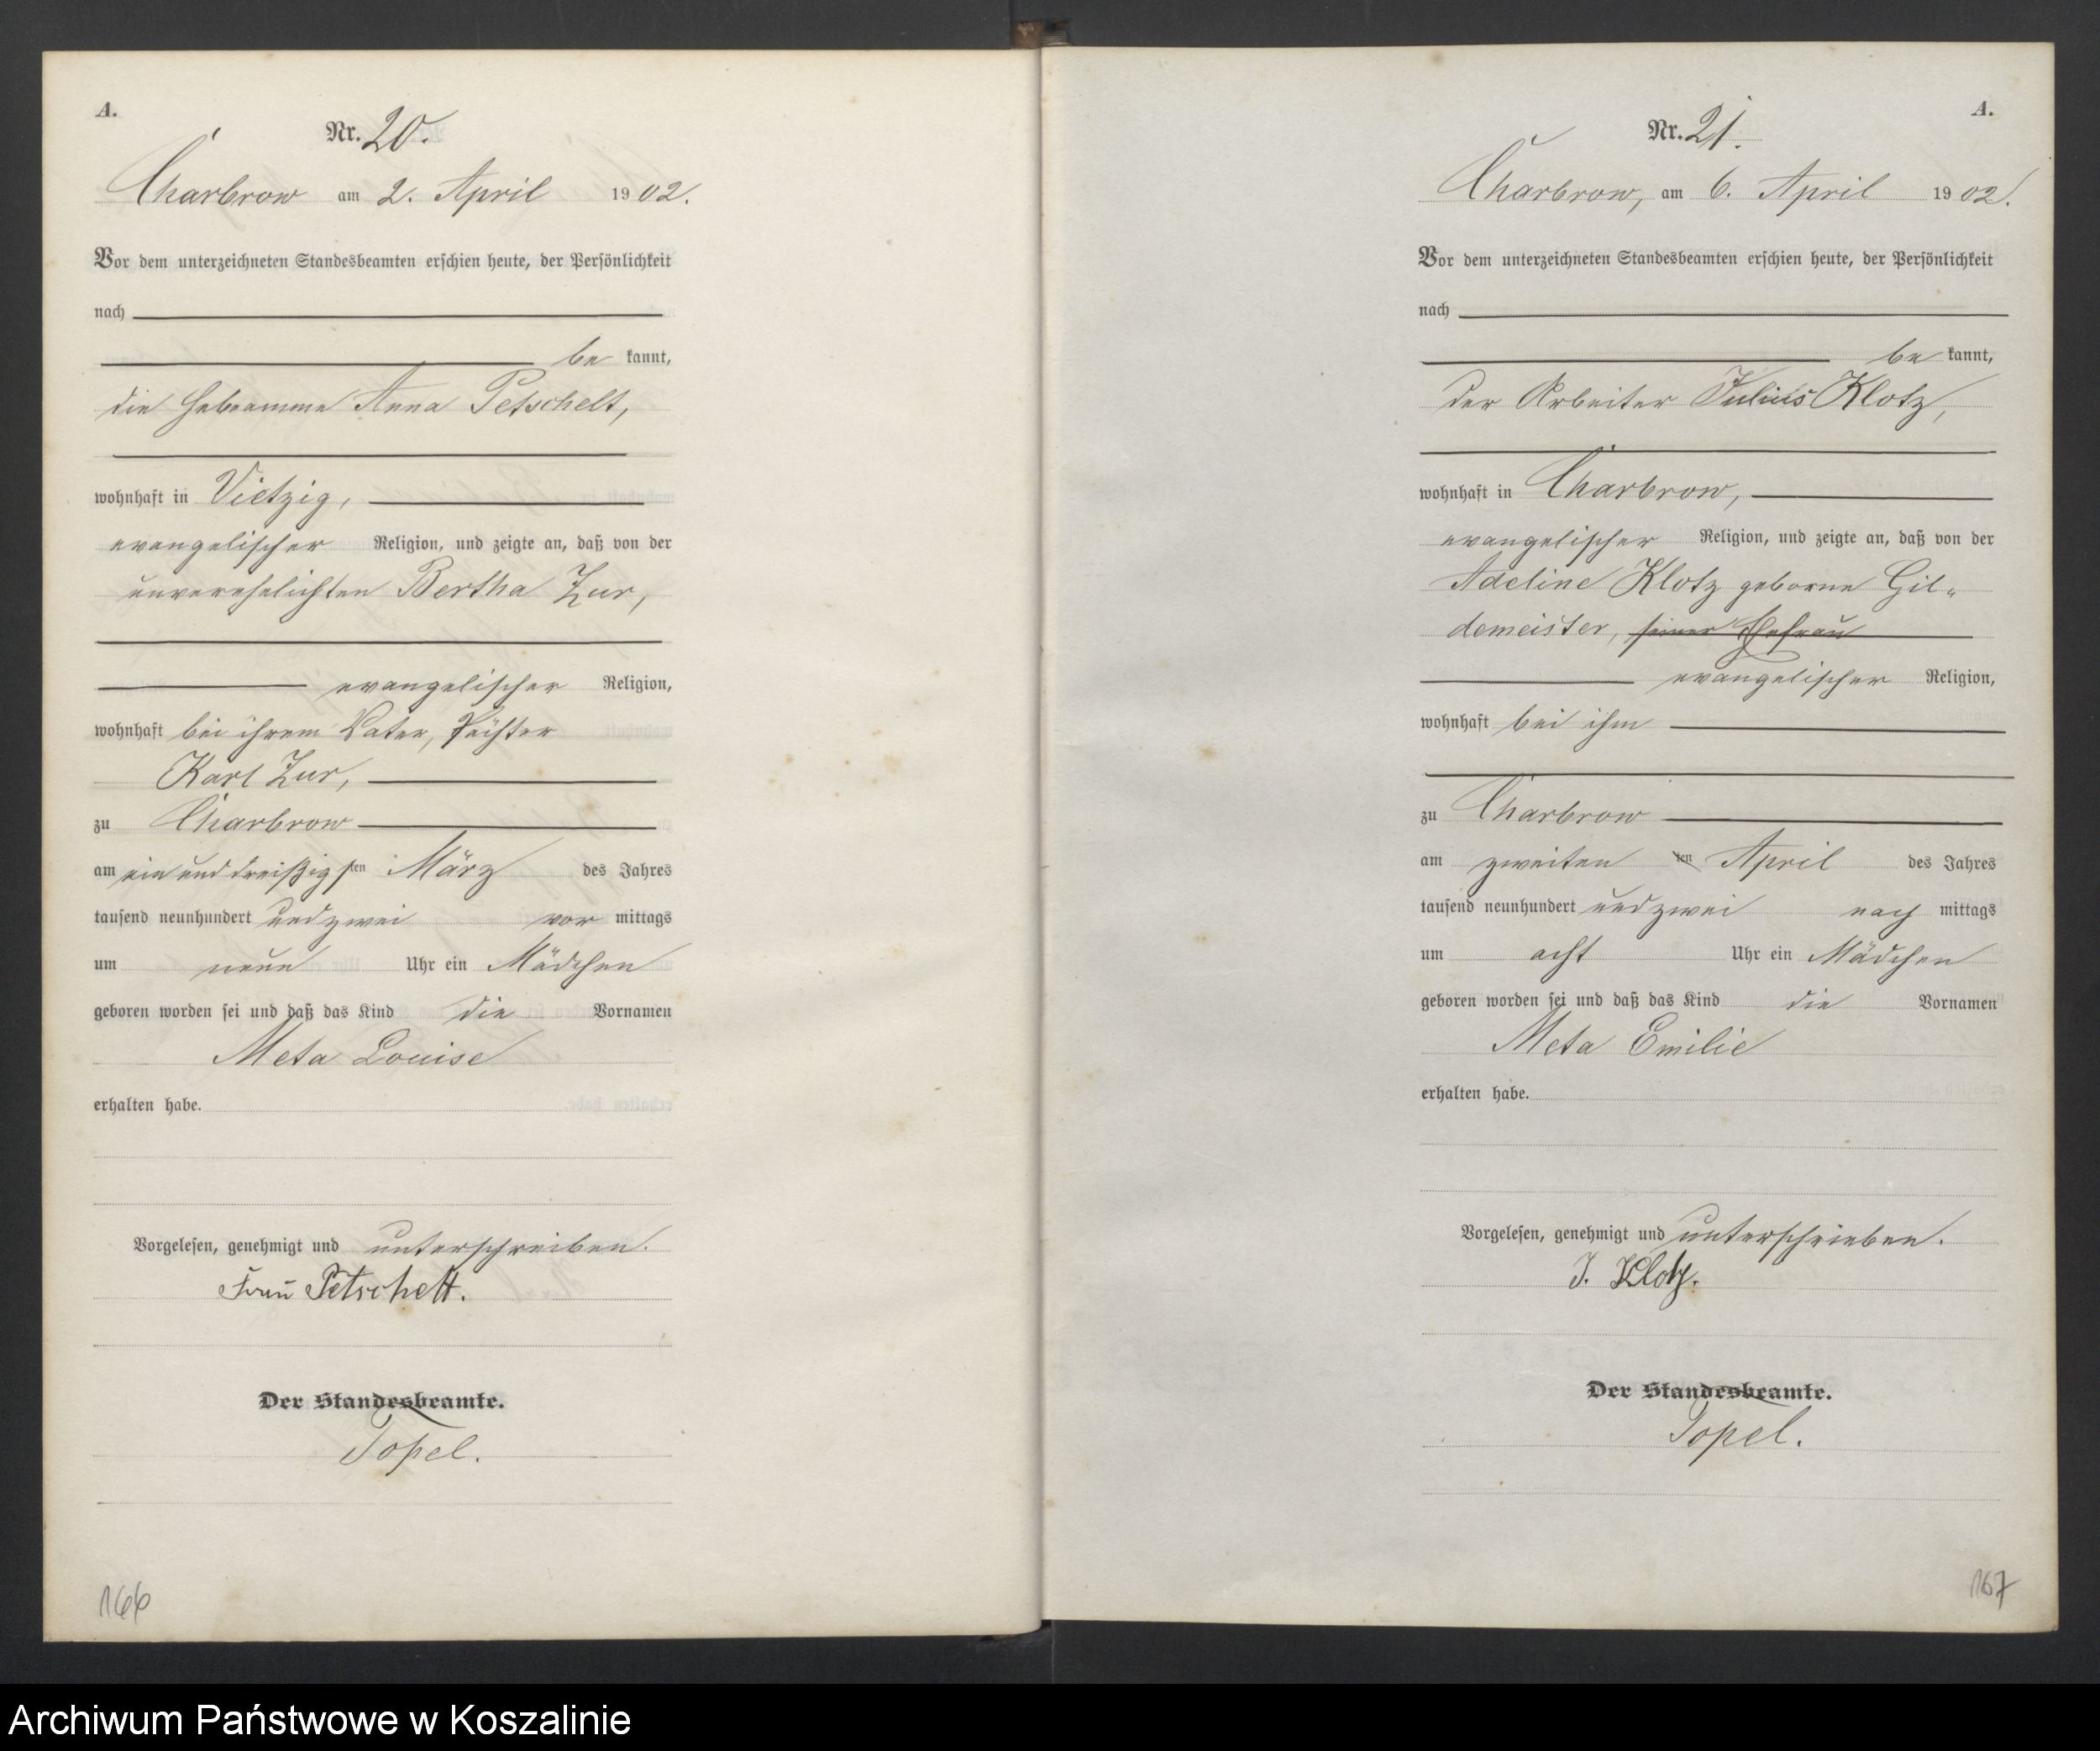 A.
Nr. 20.
Charbrow am 2. April 1902.
Vor dem unterzeichneten Standesbeamten erschien heute, der Persönlichkeit
nach
be kannt,
die Hebeamme Anna Petschelt,
wohnhaft in Vietzig,
evangelischer Religion, und zeigte an, daß von der
unverehelichten Bertha Zur,
evangelischer Religion,
wohnhaft bei ihrem Vater, Pächter
Karl Zur,
zu Charbrow
am ein und dreißigsten März des Jahres
tausend neunhundert und zwei vor mittags
um neun Uhr ein Mädchen
geboren worden sei und daß das Kind die Vornamen
Meta Louise
erhalten habe.
Vorgelesen, genehmigt und unterschreiben.
Frau Petschelt.
Der Standesbeamte.
Topel.
166
A.
Nr. 21.
Charbrow, am 6. April 1902.
Vor dem unterzeichneten Standesbeamten erschien heute, der Persönlichkeit
nach
be kannt,
der Arbeiter Julius Klotz,
wohnhaft in Charbrow,
evangelischer Religion, und zeigte an, daß von der
Adeline Klotz geborne Gil-
demeister, seiner Ehefrau
evangelischer Religion,
wohnhaft bei ihm
zu Charbrow
am zweiten ten April des Jahres
tausend neunhundert und zwei nach mittags
um acht Uhr ein Mädchen
geboren worden sei und daß das Kind die Vornamen
Meta Emilie
erhalten habe.
Vorgelesen, genehmigt und unterschrieben.
J. Klotz.
Der Standesbeamte.
Topel.
167
Archiwum Państwowe w Koszalinie